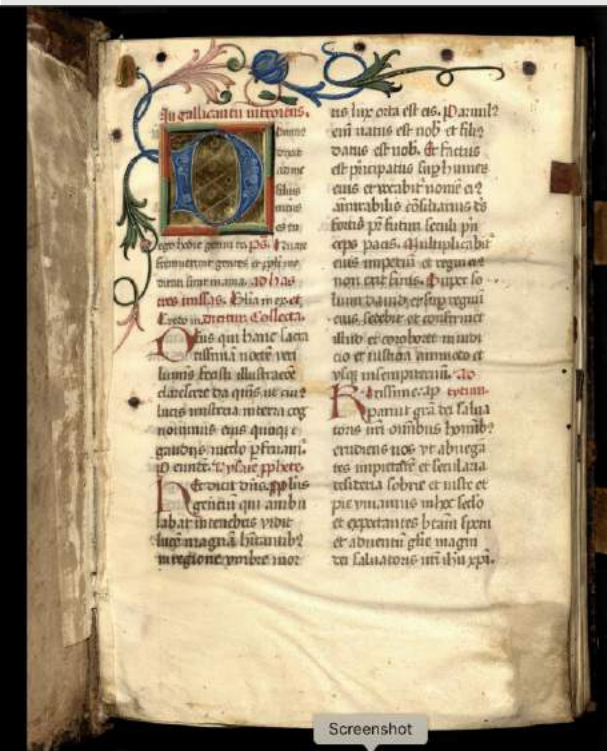 In gallicantu introitus.
Domin9
dixit
ad me
filius
meus
es tu
ego hodie genui te ps. Quare
fremuerunt gentes et ppli me
ditati sunt inania. ad has
tres missas. Glia in ex. et
Credo in. dicitur Collecta.
Deus qui hanc sacra
tissimā noctē veri
luminis fecisti illustracōe
clarescere da qs ut cui9
lucis misteria in terra cog
nouimus eius quoq
gaudiis in celo pfruam̄.
Qui
hec dicit dns. pplus
gentiū qui ambu
labat in tenebris vidit
lucē magnā hitantib9
in regione vmbre mor
tis lux orta est eis. Paruul9
em̄ natus est nob et fili9
datus est nob. Et factus
est principatus sup humerū
eius et vocabit nomē ei9
āmirabilis cōsiliarius ds
fortis pr̄ futuri seculi prī
ceps pacis. Multiplicabit̄
eius imperiū et regni ei9
non erit finis. Super so
lium dauid et sup regnū
eius sedebit et confirmet
illud et coroboret in iudi
cio et iusticia amodo et
vsq in sempiternū. ad
Karissime: ap tytum.
paruit grā dei salua
toris nri omnibus homib9
erudiens nos vt abnega
tes impietatē et secularia
desideria sobrie et iuste et
pie viuamus in hoc seclo
et expectantes btam spem
et aduentū glie magni
dei saluatoris nri ihu xpi.
Screenshot